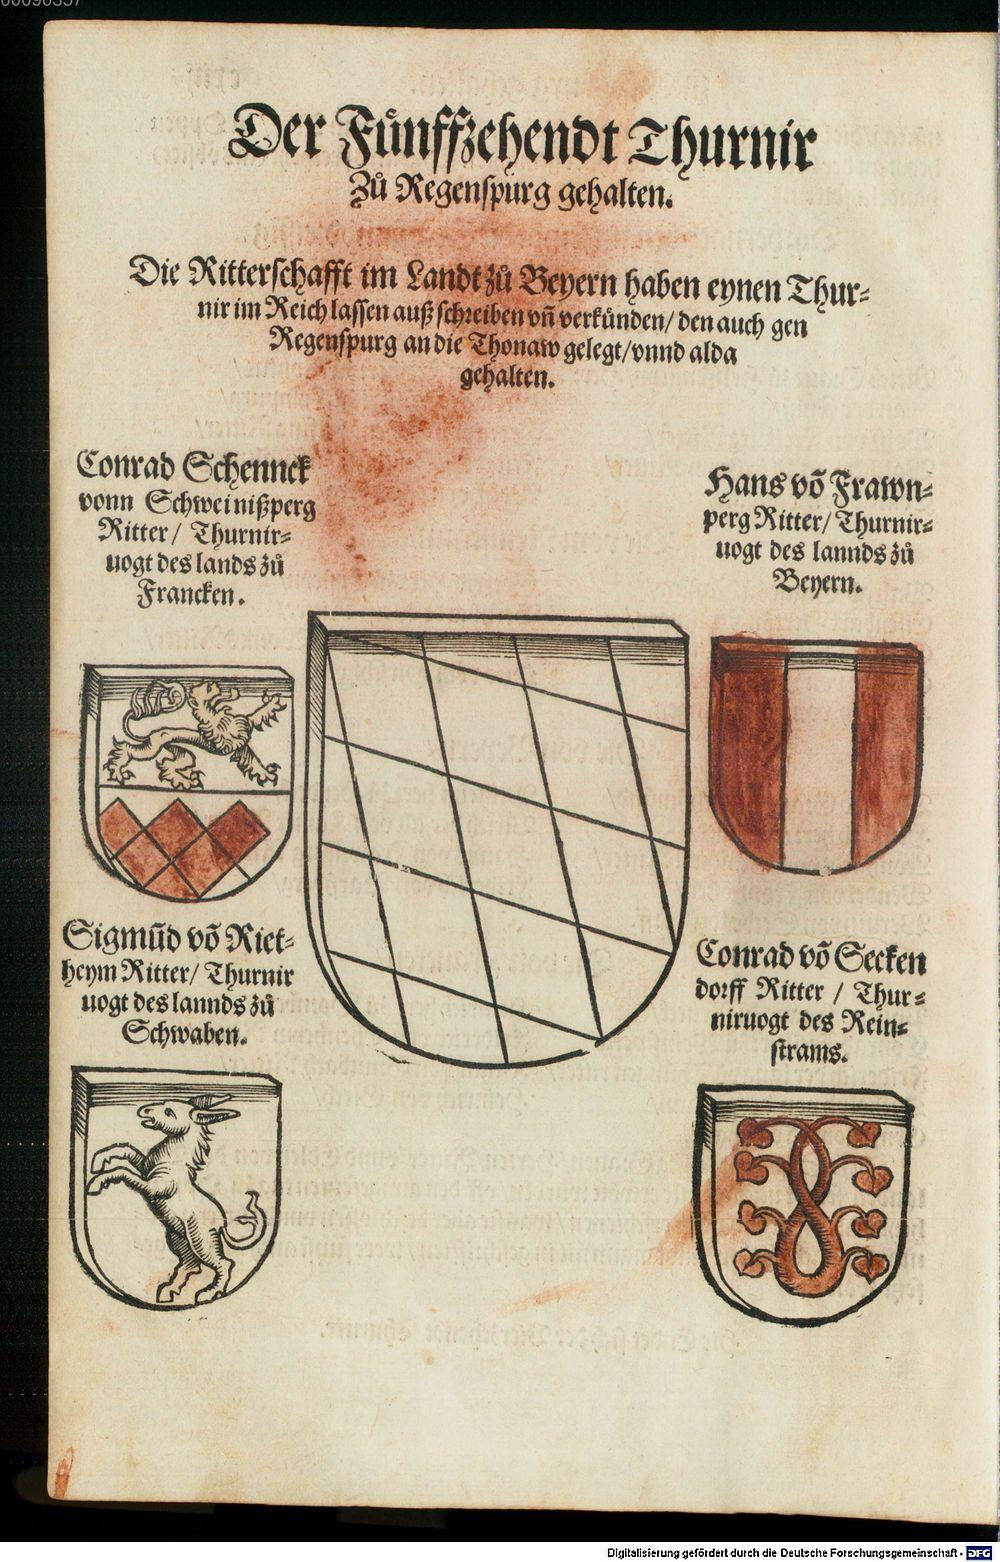 Der Fünffzehendt Thurnir
Zů Regenspurg gehalten.
Die Ritterschafft im Landt zů Beyern haben eynen Thur-
nir im Reich lassen auß schreiben vñ verkünden/ den auch gen
Regenspurg an die Thonaw gelegt/ vnnd alda
gehalten.
Conrad Schennck
vonn Schweinißperg
Ritter/ Thurnir-
uogt des lands zů
Francken.
Hans võ Frawn-
perg Ritter/ Thurnir-
uogt des lannds zů
Beyern.
Sigmũd võ Riet-
heym Ritter/ Thurnir
uogt des lannds zů
Schwaben.
Conrad võ Secken
dorff Ritter / Thur-
niruogt des Rein-
strams.
Digitalisierung gefördert durch die Deutsche Forschungsgemeinschaft - DFG